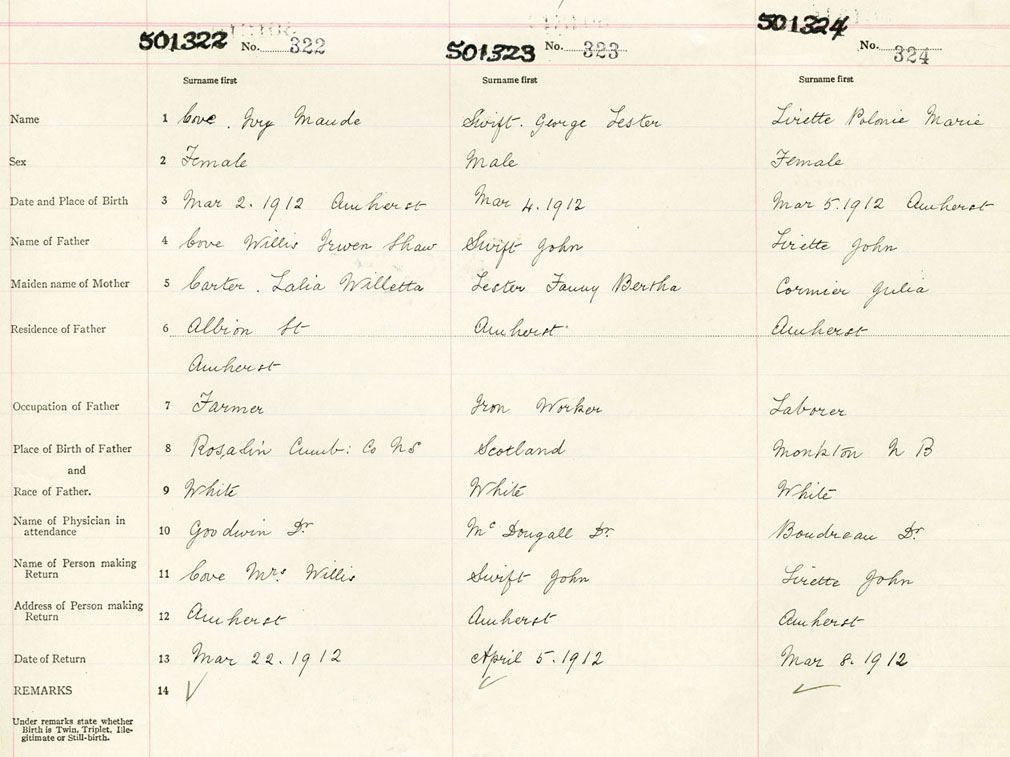 501322 No. 322 501323 No. 323 501324 No. 324
Surname first Surname first Surname first
Name 1 Cove. Ivy Maude Swift. George Lester Lirette Polonie Marie
Sex 2 Female Male Female
Date and Place of Birth 3 Mar 2. 1912 Amherst Mar 4. 1912 Mar 5. 1912 Amherst
Name of Father 4 Cove Willis Irwen Shaw Swift John Lirette John
Maiden name of Mother 5 Carter. Lalia Willetta Lester Fanny Bertha Cormier Julia
Residence of Father 6 Albion St Amherst Amherst
Amherst
Occupation of Father 7 Farmer Iron Worker Laborer
Place of Birth of Father 8 Roslin Cumb: Co NS Scotland Monkton N B
and
Race of Father. 9 White White White
Name of Physician in
attendance 10 Goodwin Dr Mc Dougall Dr. Boudreau Dr.
Name of Person making
Return 11 Cove Mrs Willis Swift John Lirette John
Address of Person making
Return 12 Amherst Amherst Amherst
Date of Return 13 Mar 22. 1912 April 5. 1912 Mar 8. 1912
REMARKS 14 ✓ ✓ ✓
Under remarks state whether
Birth is Twin, Triplet, Ille-
gitimate or Still-birth.